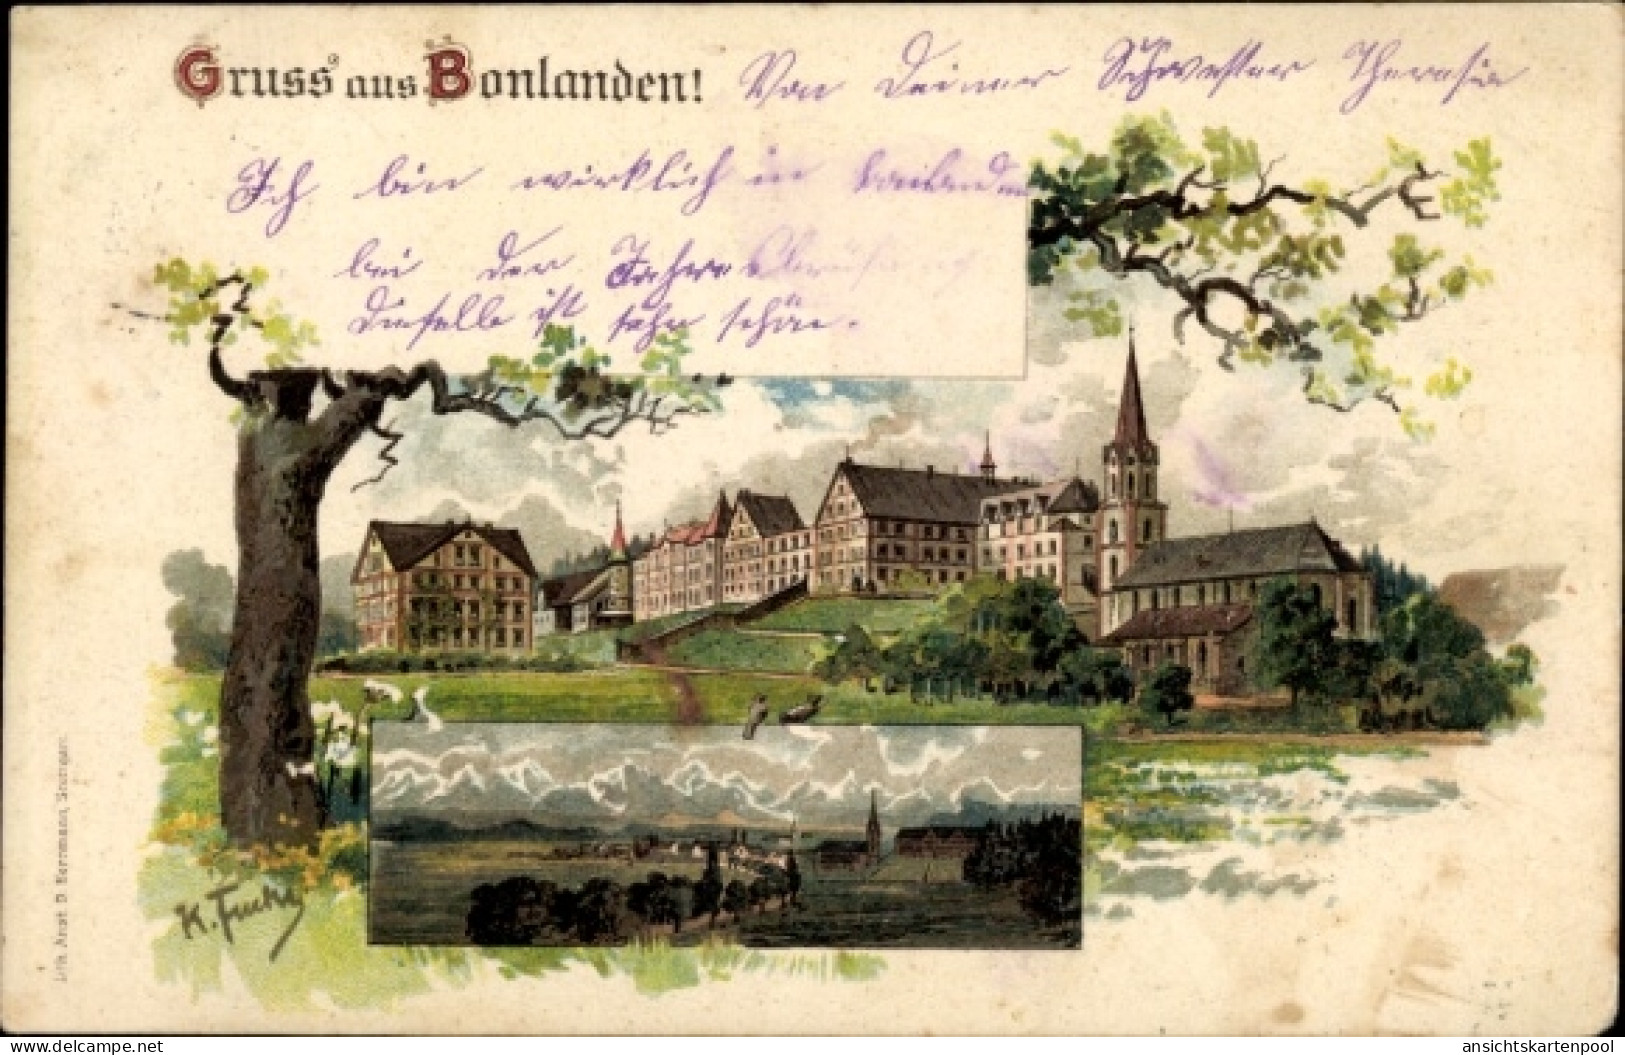 Gruss aus Bonlanden!
Von Deiner Schwester Theresia
Ich bin wirklich in
bei der
dieselbe ist sehr schön.
K. Fuchs
Lith. Anst. D. Herrmann, Stuttgart.
delcampe.net
ansichtskartenpool